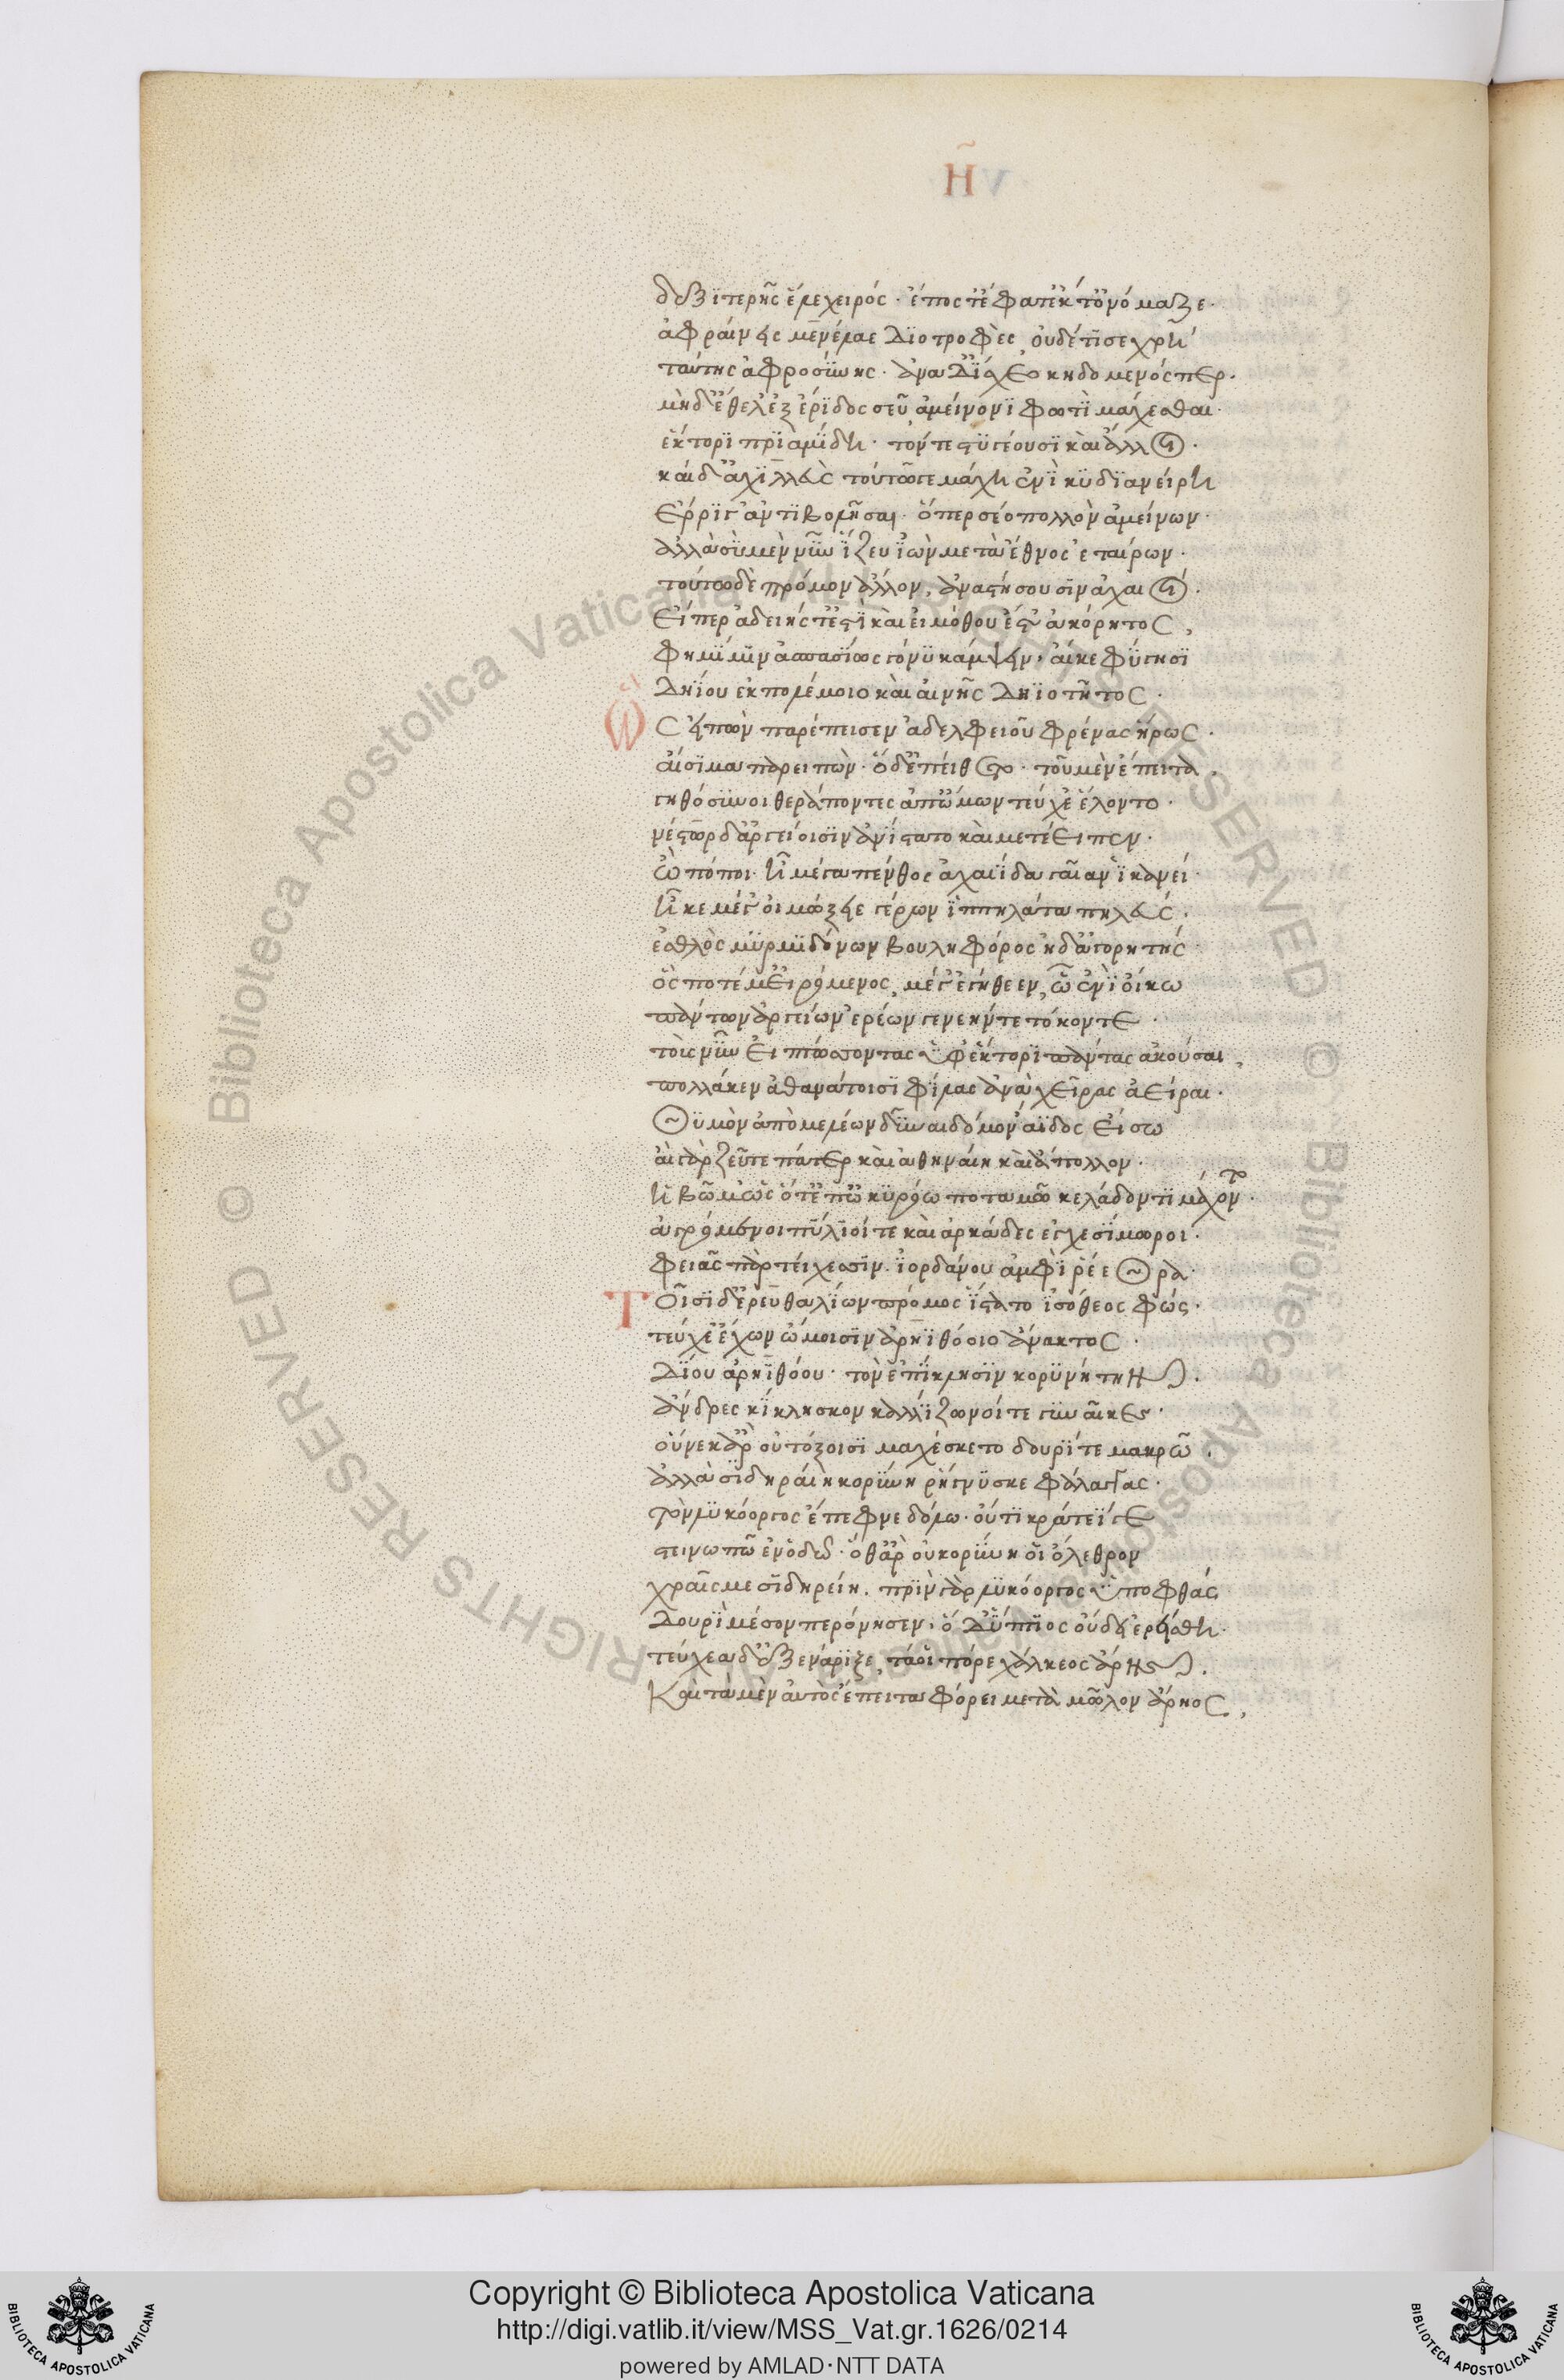 Η
δεξϊτερῆς ἕλε χειρός· ἔπος τ' ἔφατ' ἔκ τ' ὀνόμαζε·
ἀφραίνεις μενέλαε διοτροφὲς, οὐδέ τί σε χρὴ
ταύτης ἀφροσύνης· ἀνα δ' ἴσχεο κηδόμενός περ·
μὴ δ' ἔθελ' ἐξ ἔριδος σεῦ ἀμείνονϊ φωτὶ μάχεσθαι·
ἕκτορϊ πρϊαμίδη· τόν τε στϋγέουσϊ καὶ ἄλλοι·
καὶ δ' ἀχϊλλεὺς τούτω γε μάχη ἐνὶ κϋδϊανείρη
ἔρριγ' ἀντϊβολῆσαι· ὅπερ σέο πολλὸν ἀμείνων·
ἀλλὰ σὺ μὲν νῦν ἵζευ ἰὼν μετὰ ἔθνος ἑταίρων·
τούτω δὲ πρόμον ἄλλον, ἀναστήσουσϊν ἀχαιοί·
εἴπερ ἀδειής τ' ἐστὶ καὶ εἰ μόθου ἔστ' ἀκόρητος,
φημί μϊν ἀσπασίως γόνϋ κάμψειν, αἴκε φύγησϊ
δηΐου ἐκ πολέμοιο καὶ αἰνῆς δηϊοτῆτος·
Ὣς εἰπὼν παρέπεισεν ἀδελφειοῦ φρένας ἥρως·
αἴσϊμα παρειπών· ὁ δ' ἐπείθετο· τοῦ μὲν ἔπειτα,
γηθόσϋνοι θεράποντες ἀπ' ὤμων τεύχε' ἕλοντο·
νέστωρ δ' ἀργείοισϊν ἀνίστατο καὶ μετέειπεν·
ὦ πόποι· ἦ μέγα πένθος ἀχαιΐδα γαῖαν ἱκάνει·
ἦ κε μέγ' οἰμώξειε γέρων ἱππηλάτα πηλεύς·
ἐσθλὸς μϋρμϊδόνων βουληφόρος ἠδ' ἀγορητής
ὅς ποτέ μ' εἰρόμενος, μέγ' ἐγήθεεν, ὧ ἐνὶ οἴκω
πάντων ἀργείων ἐρέων γενεήν τε τόκον τε·
τοὺς νῦν εἰ πτώσσοντας ὑφ' ἕκτορϊ πάντας ἀκούσαι,
πολλάκεν ἀθανάτοισϊ φίλας ἀνὰ χεῖρας ἀείραι·
θϋμὸν ἀπὸ μελέων δῦναι δόμον ἄϊδος εἴσω
αἲ γὰρ ζεῦ τε πάτερ καὶ ἀθηναίη καὶ ἄπολλον·
ἡβῶμ' ὡς ὅτ' ἐπ' ὠκϋρόω ποταμῶ κελάδοντϊ μάχοντο·
ἀγρόμενοι πύλϊοί τε καὶ ἀρκάδες ἐγχεσίμωροι·
φειᾶς πὰρ τείχεσσϊν· ἰορδάνου ἀμφὶ ῥέεθρα·
Τοῖσϊ δ' ἐρευθαλίων πρόμος ἵστατο ἰσόθεος φώς·
τεύχε' ἔχων ὤμοισϊν ἀρηϊθόοιο ἄνακτος·
δίου ἀρηϊθόου· τὸν ἐπίκλησϊν κορϋνήτην·
ἄνδρες κίκλησκον καλλίζωνοί τε γϋναῖκες·
οὕνεκ' ἄρ' οὐ τόξοισϊ μαχέσκετο δουρϊ τε μακρῶ·
ἀλλὰ σϊδηρείη κορύνη ῥήγνϋσκε φάλαγγας·
τὸν λϋκόοργος ἔπεφνε δόλω· οὔτϊ κράτεΐ γε
στεινωπῶ ἐν ὁδῶ· ὅθ' ἄρ' οὐ κορύνη οἱ ὄλεθρον
χραῖσμε σϊδηρείη· πρὶν γὰρ λϋκόοργος ὑποφθὰς
δουρὶ μέσον περόνησεν, ὁ δ' ὕπτιος οὔδει ἐρείσθη·
τεύχεα δ' ἐξενάρϊξε, τά οἱ πόρε χάλκεος ἄρης·
Καὶ τὰ μὲν αὐτὸς ἔπειτα φόρει μετὰ μῶλον ἄρηος·,
Copyright © Biblioteca Apostolica Vaticana
http://digi.vatlib.it/view/MSS_Vat.gr.1626/0214
powered by AMLAD·NTT DATA
BIBLIOTECA APOSTOLICA VATICANA
BIBLIOTECA APOSTOLICA VATICANA